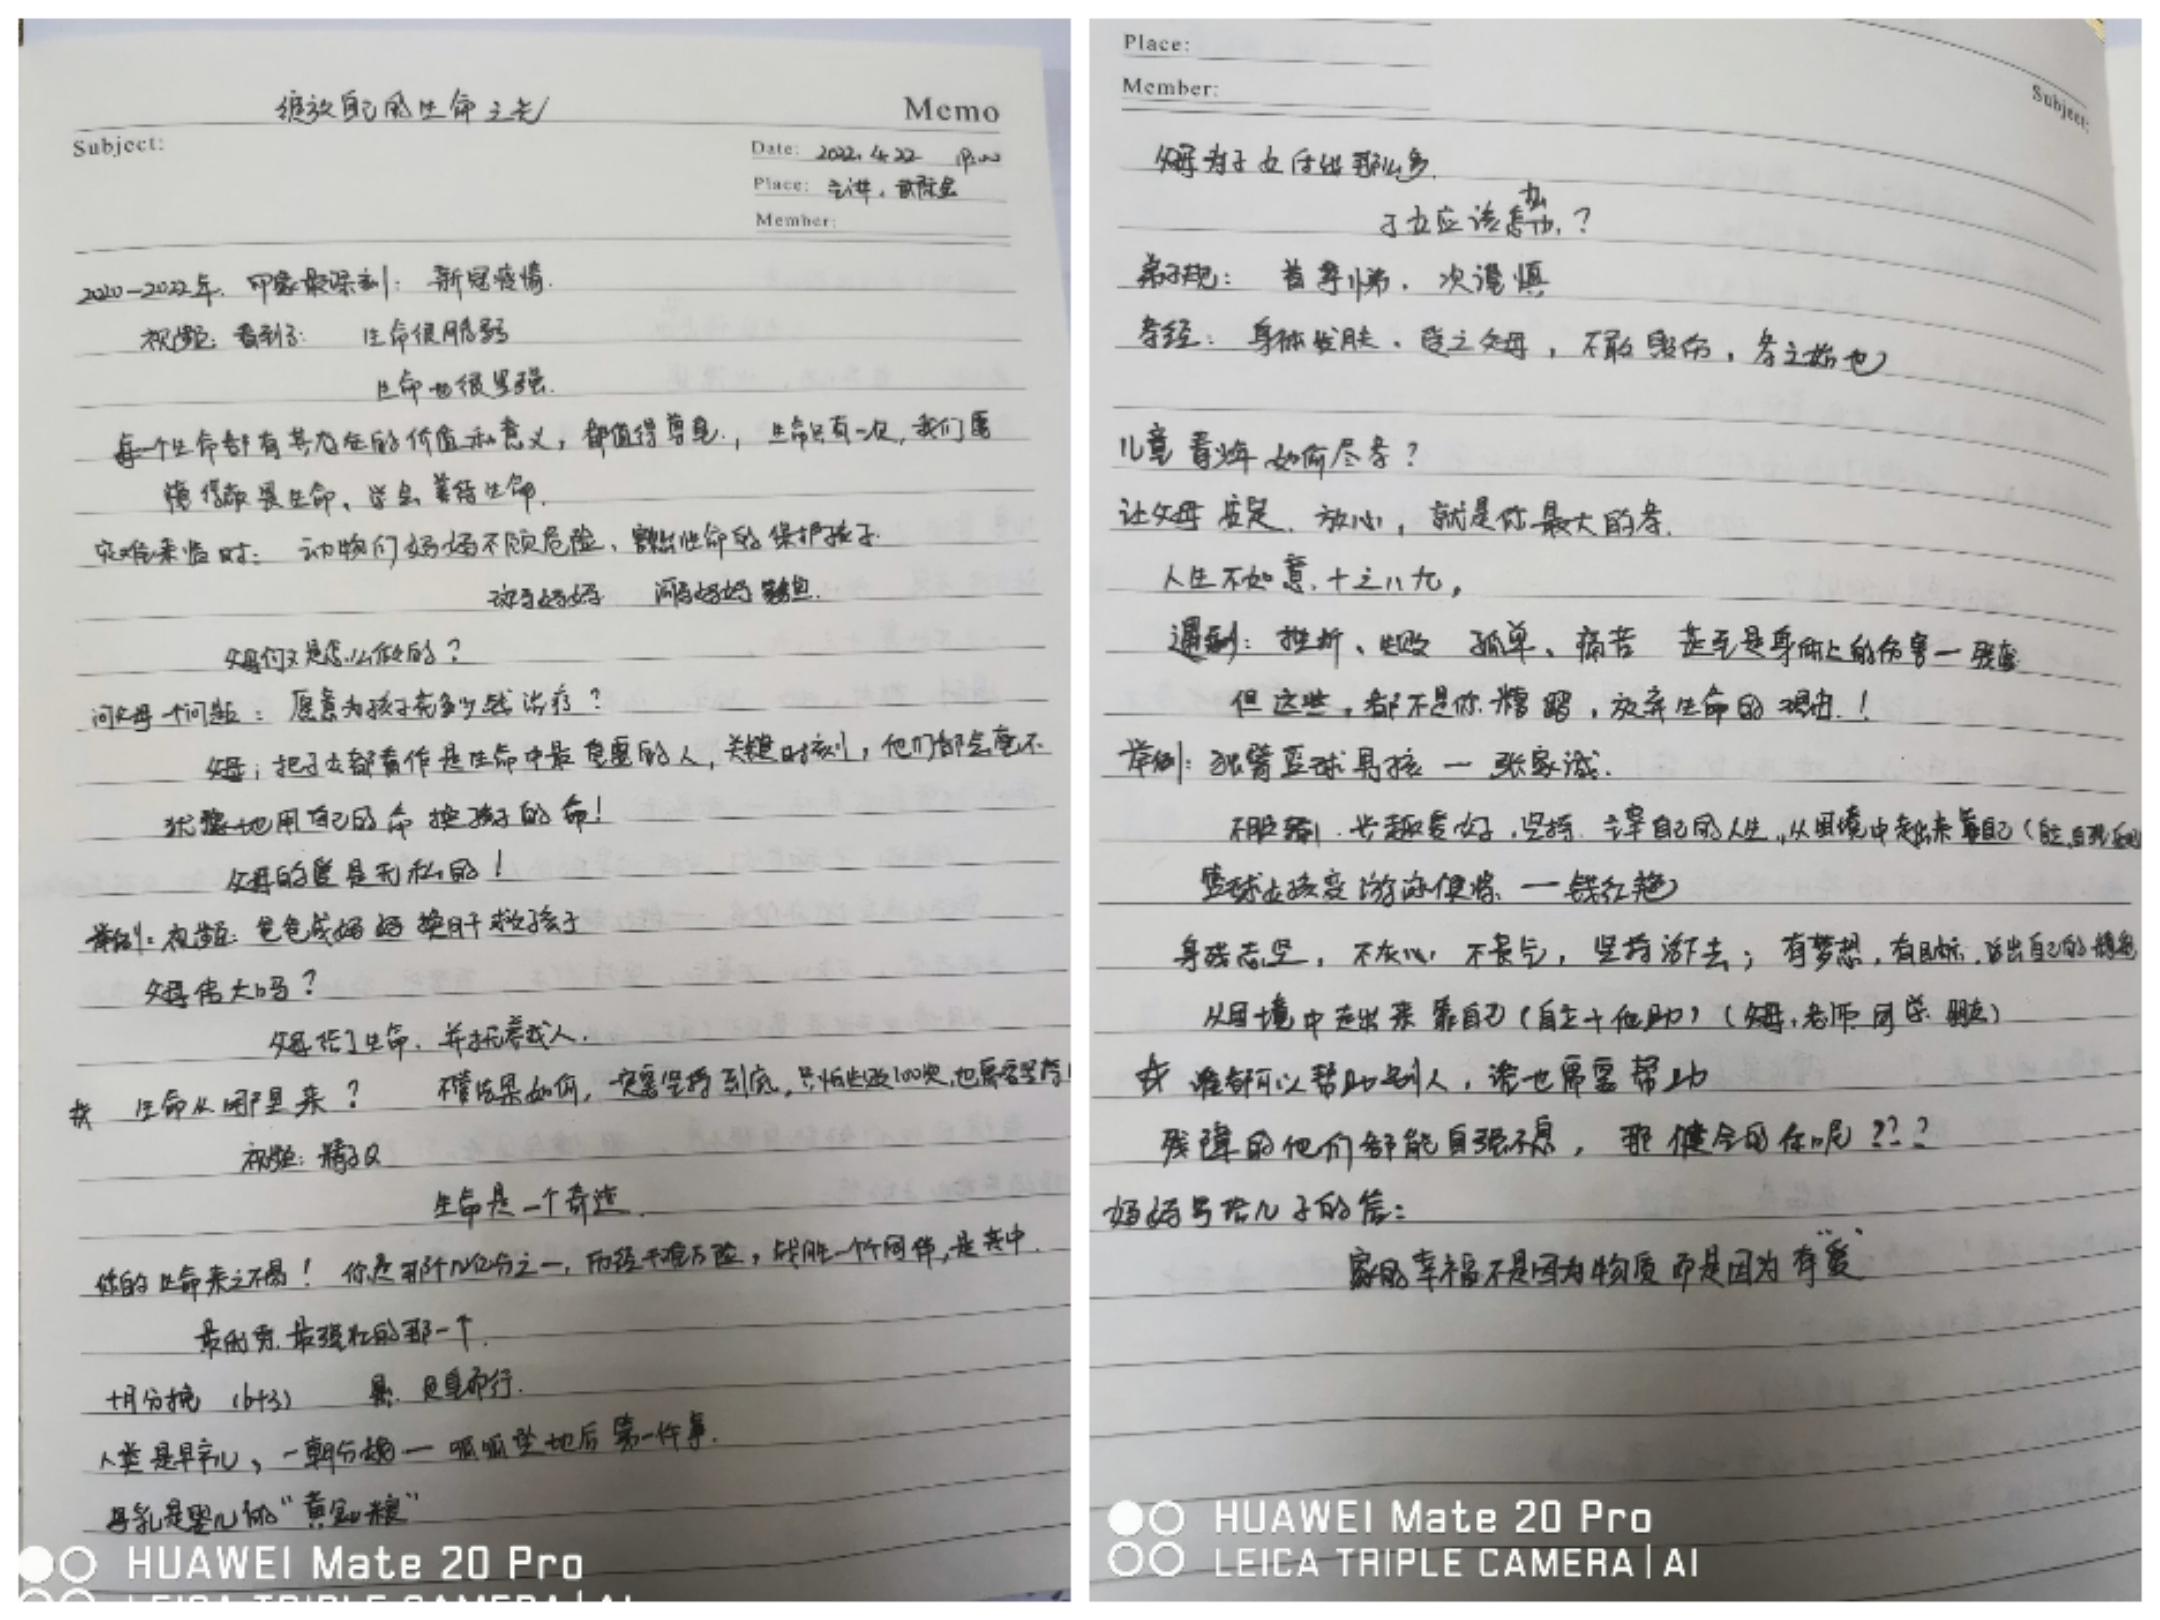 绽放自己的生命之光
Memo
Subject:
Date: 2022.4.22
Place: 主讲:
Member:
2020-2022年. 印象最深刻: 新冠疫情.
视频: 看到了: 生命很脆弱
生命也很坚强.
每一个生命都有其存在的价值和意义, 都值得尊重, 生命只有一次, 我们要
懂得敬畏生命、学会善待生命.
灾难来临时: 动物们妈妈不顾危险、豁出性命的保护孩子.
河马妈妈
父母们又是怎么做的?
问父母一个问题: 愿意为孩子花多少钱治疗?
父母; 把子女都看作是生命中最重要的人, 关键时刻, 他们都会毫不
犹豫地用自己的命换孩子的命!
父母的爱是无私的!
举例: 视频: 爸爸或妈妈换肝救孩子
父母伟大吗?
父母给了生命, 并抚养成人.
生命从哪里来? 不管结果如何, 一定要坚持到底, 只怕失败100次, 也需要坚持!
视频: 精子
生命是一个奇迹.
你的生命来之不易! 你是那个几亿分之一, 历经千难万险, 战胜一个个同伴, 是其中
最优秀.最强壮的那一个.
十月分娩 (6+3)
人类是早产儿, 一朝分娩 — 呱呱坠地后第一件事.
母乳是婴儿的"黄金粮"
HUAWEI Mate 20 Pro
LEICA TRIPLE CAMERA | AI
Place:
Member:
Subject:
父母为子女付出那么多.
子女应该怎么办?
弟子规: 首孝悌、次谨慎
孝经: 身体发肤、受之父母, 不敢毁伤, 孝之始也
儿童青少年如何尽孝?
让父母安定、放心, 就是你最大的孝.
人生不如意, 十之八九,
遇到: 挫折、失败 孤单、痛苦 甚至是身体上的伤害—残疾
但这些, 都不是你, 放弃生命的理由!
举例: 独臂篮球男孩 — 张家城.
不服输、兴趣爱好、坚持、主宰自己的人生, 从困境中走出来靠自己(自立,自强
篮球女孩变游泳健将 — 钱红艳
身残志坚, 不灰心 不丧气, 坚持活下去; 有梦想, 有目标, 活出自己的精彩
从困境中走出来靠自己(自立+他助)(父母, 老师 同学 朋友)
谁都可以帮助别人, 谁也需要帮助
残障的他们都能自强不息, 那健全的你呢???
妈妈写给儿子的信:
家的幸福不是因为物质而是因为有"爱"
HUAWEI Mate 20 Pro
LEICA TRIPLE CAMERA | AI